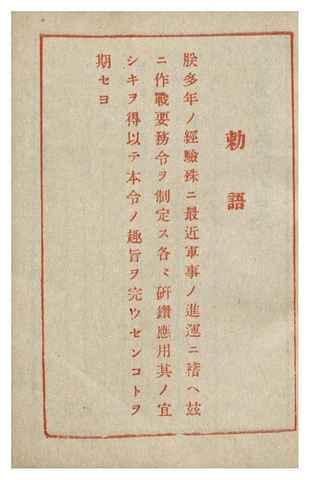 勅語
朕多年ノ經驗殊ニ最近軍事ノ進運ニ稽ヘ茲
ニ作戰要務令ヲ制定ス各〻硏鑽應用其ノ宜
シキヲ得以テ本令ノ趣旨ヲ完ウセンコトヲ
期セヨ